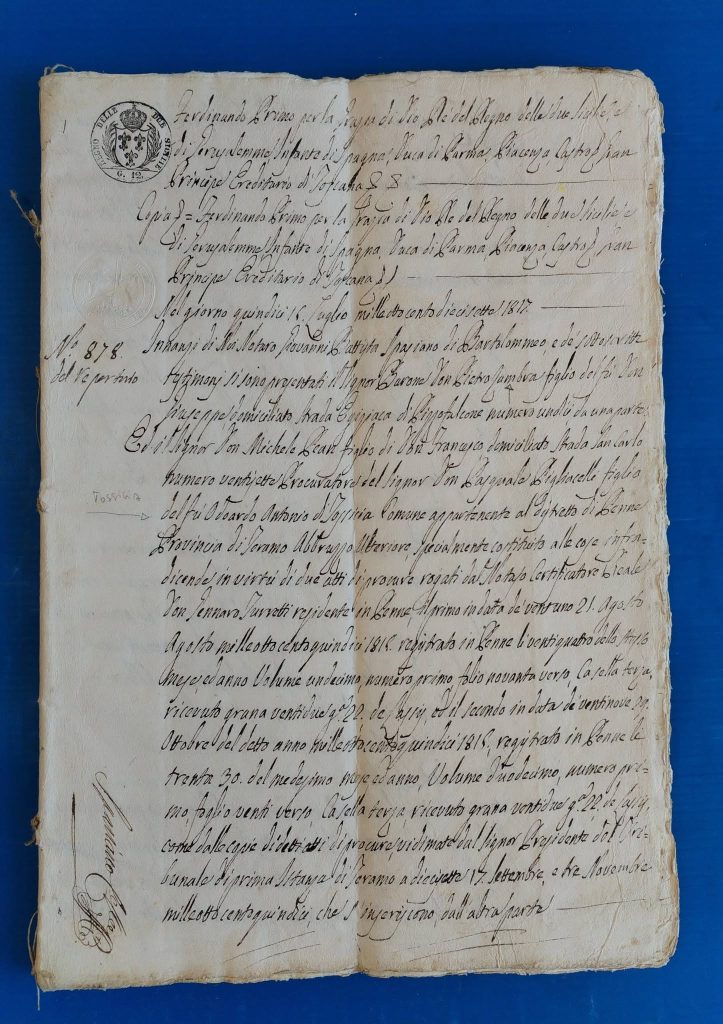 REGNO DELLE DUE SICILIE
G. 12.
Ferdinando Primo per la Grazia di Dio Re del Regno delle due Sicilie, e
di Gerusalemme Infante di Spagna, Duca di Parma, Piacenza Castro & Gran
Principe Ereditario di Toscana & &
Copia = Ferdinando Primo per la Grazia di Dio Re del Regno delle due Sicilie e
di Gerusalemme Infante di Spagna, Duca di Parma, Piacenza, Castro & Gran
Principe Ereditario di Toscana
Nel giorno quindici 15. Luglio milleottocentodiecisette 1817.
No. 878.
del Repertorio
Innanzi di Noi Notaro Giovanni Battista Spasiano di Bartolommeo e de sottoscritti
testimonj si sono presentati il Signor Barone Don Pietro figlio del fù Don
Giuseppe domiciliato strada di Pizzofalcone numero undici da una parte.
Ed il Signor Don Michele figlio di Don Francesco domiciliato strada San Carlo
numero ventisette Procuratore del Signor Don Pasquale figlio
Tossicia
del fù Odoardo Antonio di Tossicia Comune appartenente al distretto di Penne
Provincia di Teramo Abbruzzo Ulteriore, specialmente costituito alle cose infra=
dicende in virtù di due atti di procure rogati dal Notajo Certificatore Reale
Don Gennaro residente in Penne il primo in data de ventuno 21. Agosto
Agosto milleottocentoquindici 1815. registrato in Penne li ventiquattro dello stesso
mese ed anno Volume undecimo, numero primo, folio novanta verso, Casella terza,
ricevuto grana ventidue g.a 22. ed il secondo in data de ventinove 29.
Ottobre del detto anno milleottocentoquindici 1815, registrato in Penne li
trenta 30. del medesimo mese ed anno, Volume duodecimo, numero pri=
mo, foglio venti verso, Casella terza, ricevuto grana ventidue g.a 22.
come dalle copie di detti atti di procure, vidimate dal Signor Presidente del Tri=
bunale di prima Istanza di Teramo a diecisette 17. Settembre, e tre Novembre
milleottocentoquindici, che s'inseriscono dall'altra parte